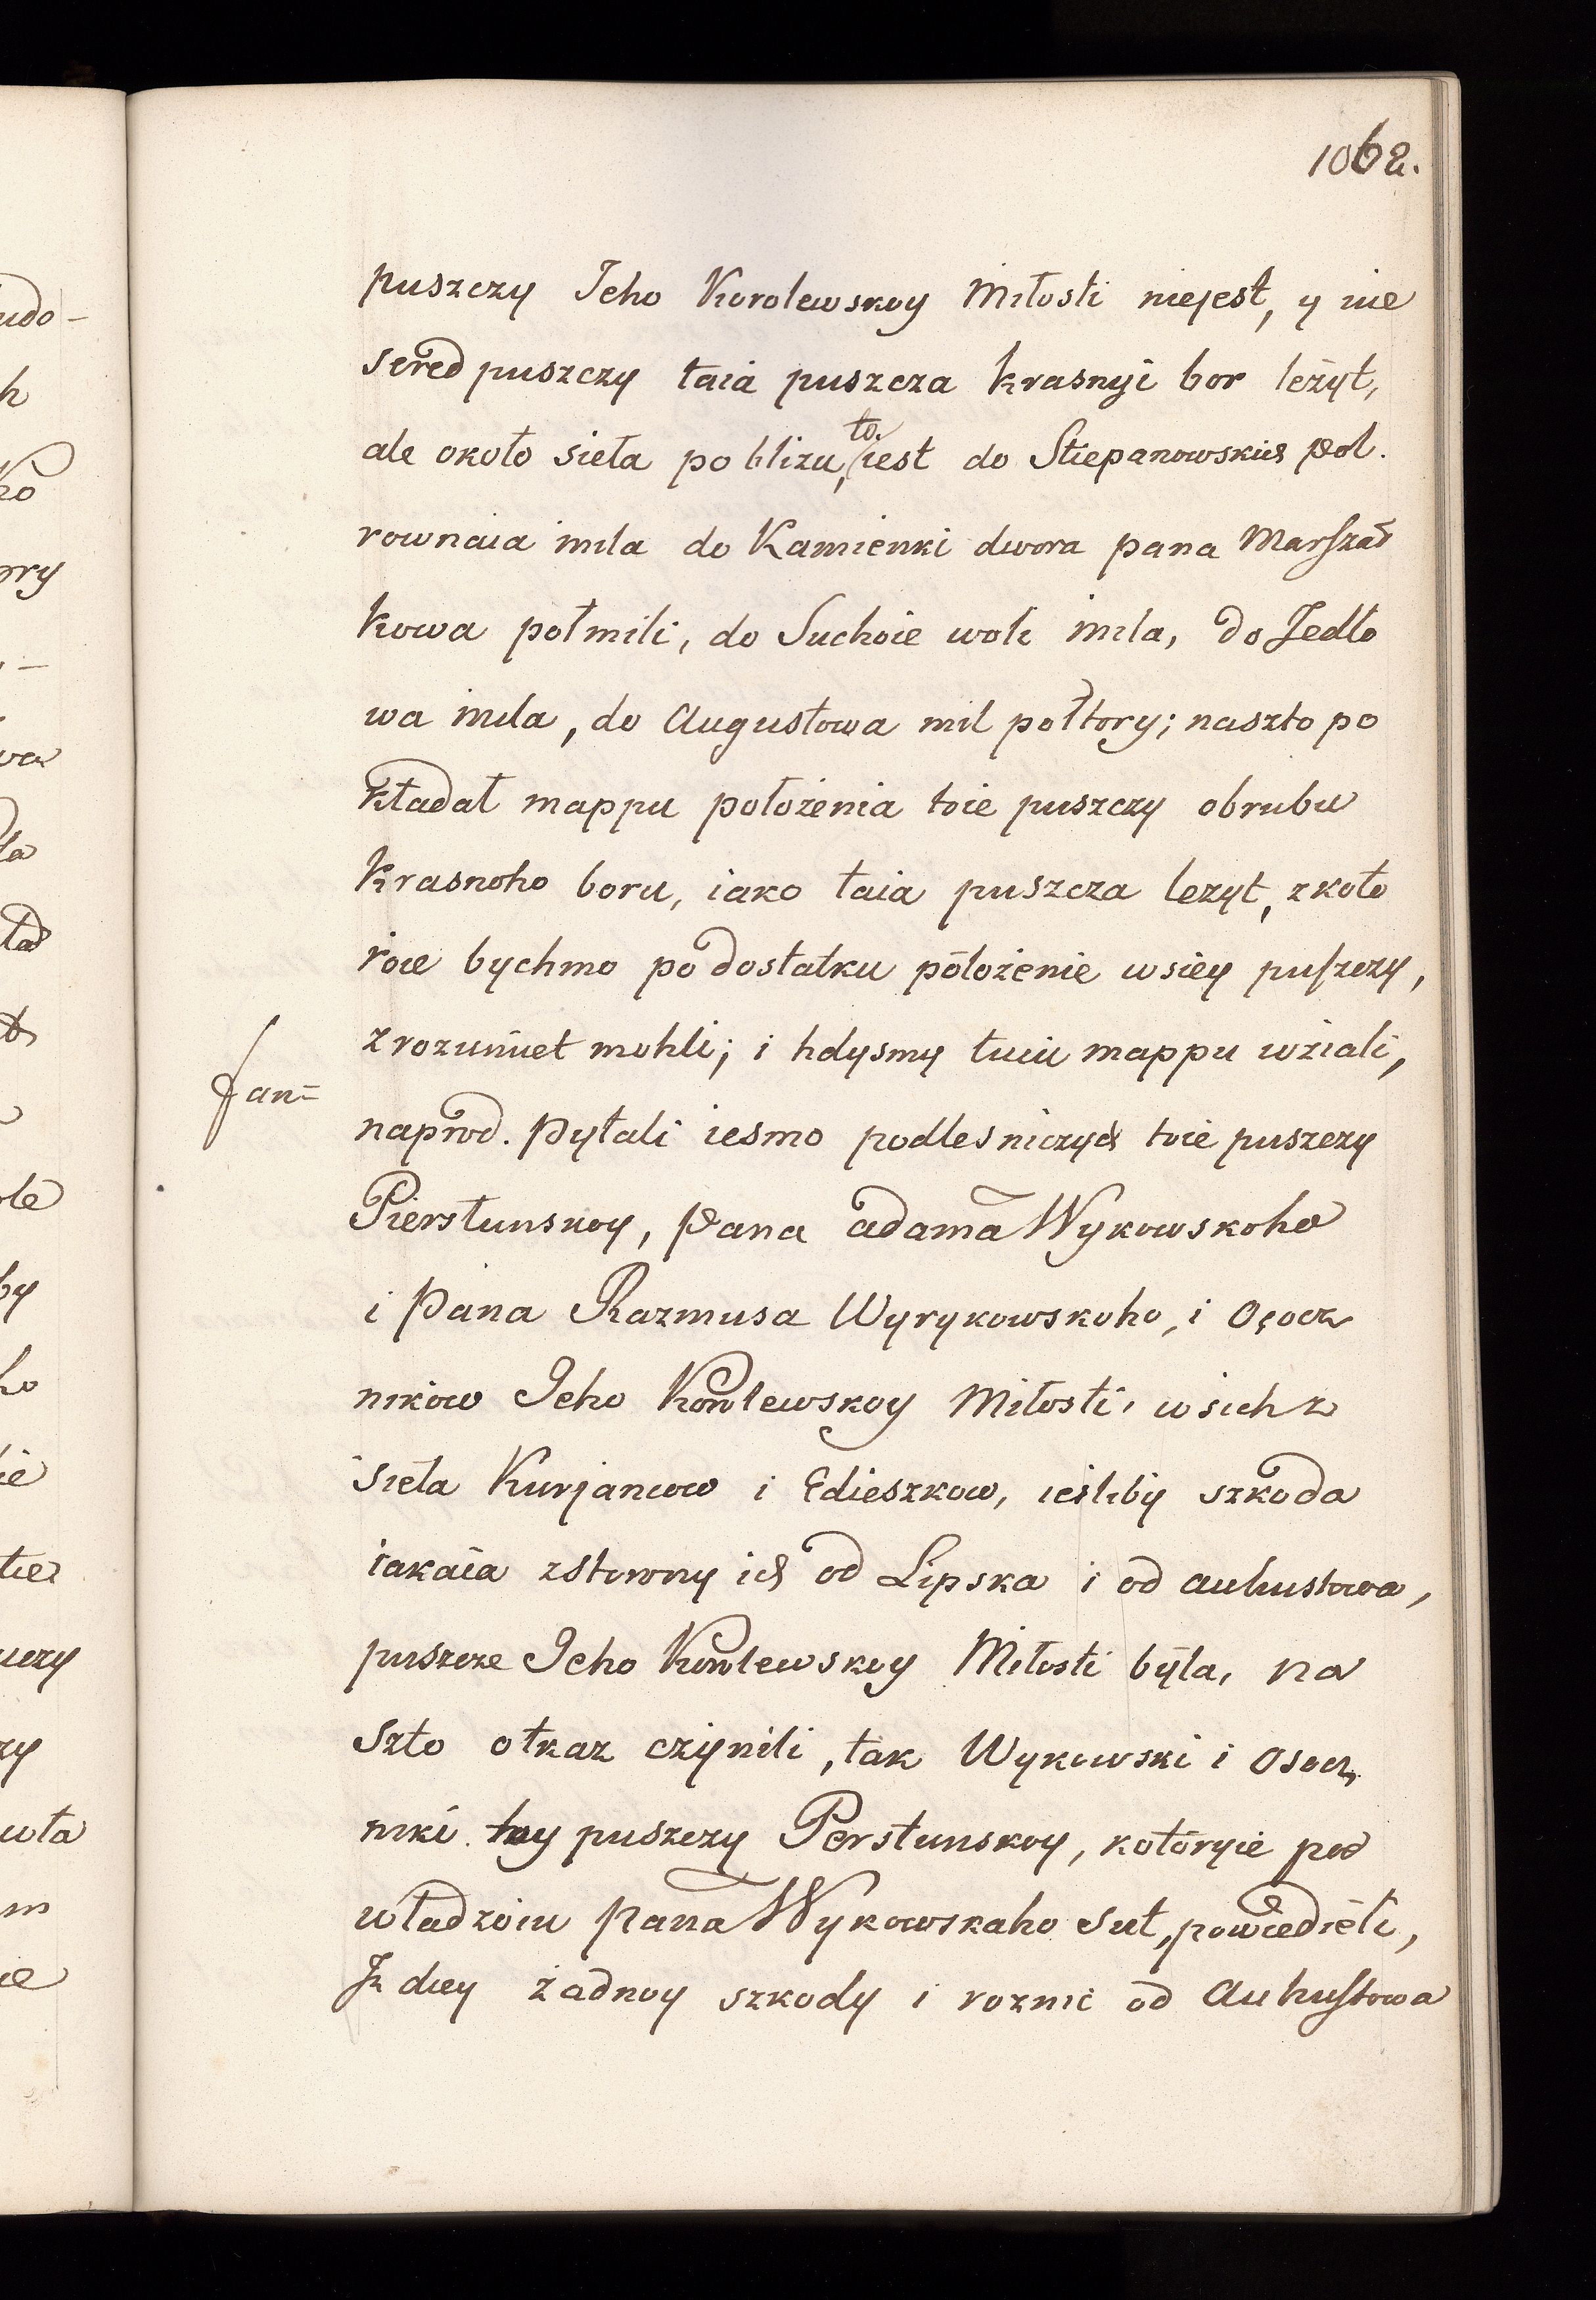 1062.
puszczy Jeho Korolewskoy Miłosti niejest, y nie
sered puszczy taia puszcza krasnyi bor leżyt,
ale około sieła po blizu, to iest do Stiepanowskich pol.
rownaia mila do Kamienki dwora pana Marszał
kowa połmili, do Suchoie woli mila, do Jedło
wa mila, do Augustowa mil połtory; naszto po
kładał mappu położenia toie puszczy obrubu
Krasnoho boru, iako taia puszcza leżyt, z koto
roie bychmo po dostatku położenie wsiey puszczy,
zrozumiet mohli; i hdysmy tuiu mappu wziali,
naprod. pytali iesmo podlesniczych toie puszczy
Pierstunskoy, Pana adama Wykowskoho
i Pana Razmusa Wyrykowskoho, i Osocz
nikow Jeho Korolewskoy Miłosti, wsich z
sieła Kurjancow i Edieszkow, iesliby szkoda
iakaia zstorony ich od Lipska i od auhustowa,
puszcze Jeho Korolewskoy Miłosti była, na
szto otkaz czynili, tak Wykowski i Osocz
niki toy puszczy Perstunskoy, kotoryie pod
władzoiu Pana Wykowskaho sut, powiedieli,
Iż diey żadnoy szkody i roznic od Auhustowa
udo-
h
ko
ory
ła
uczy
zy
uła